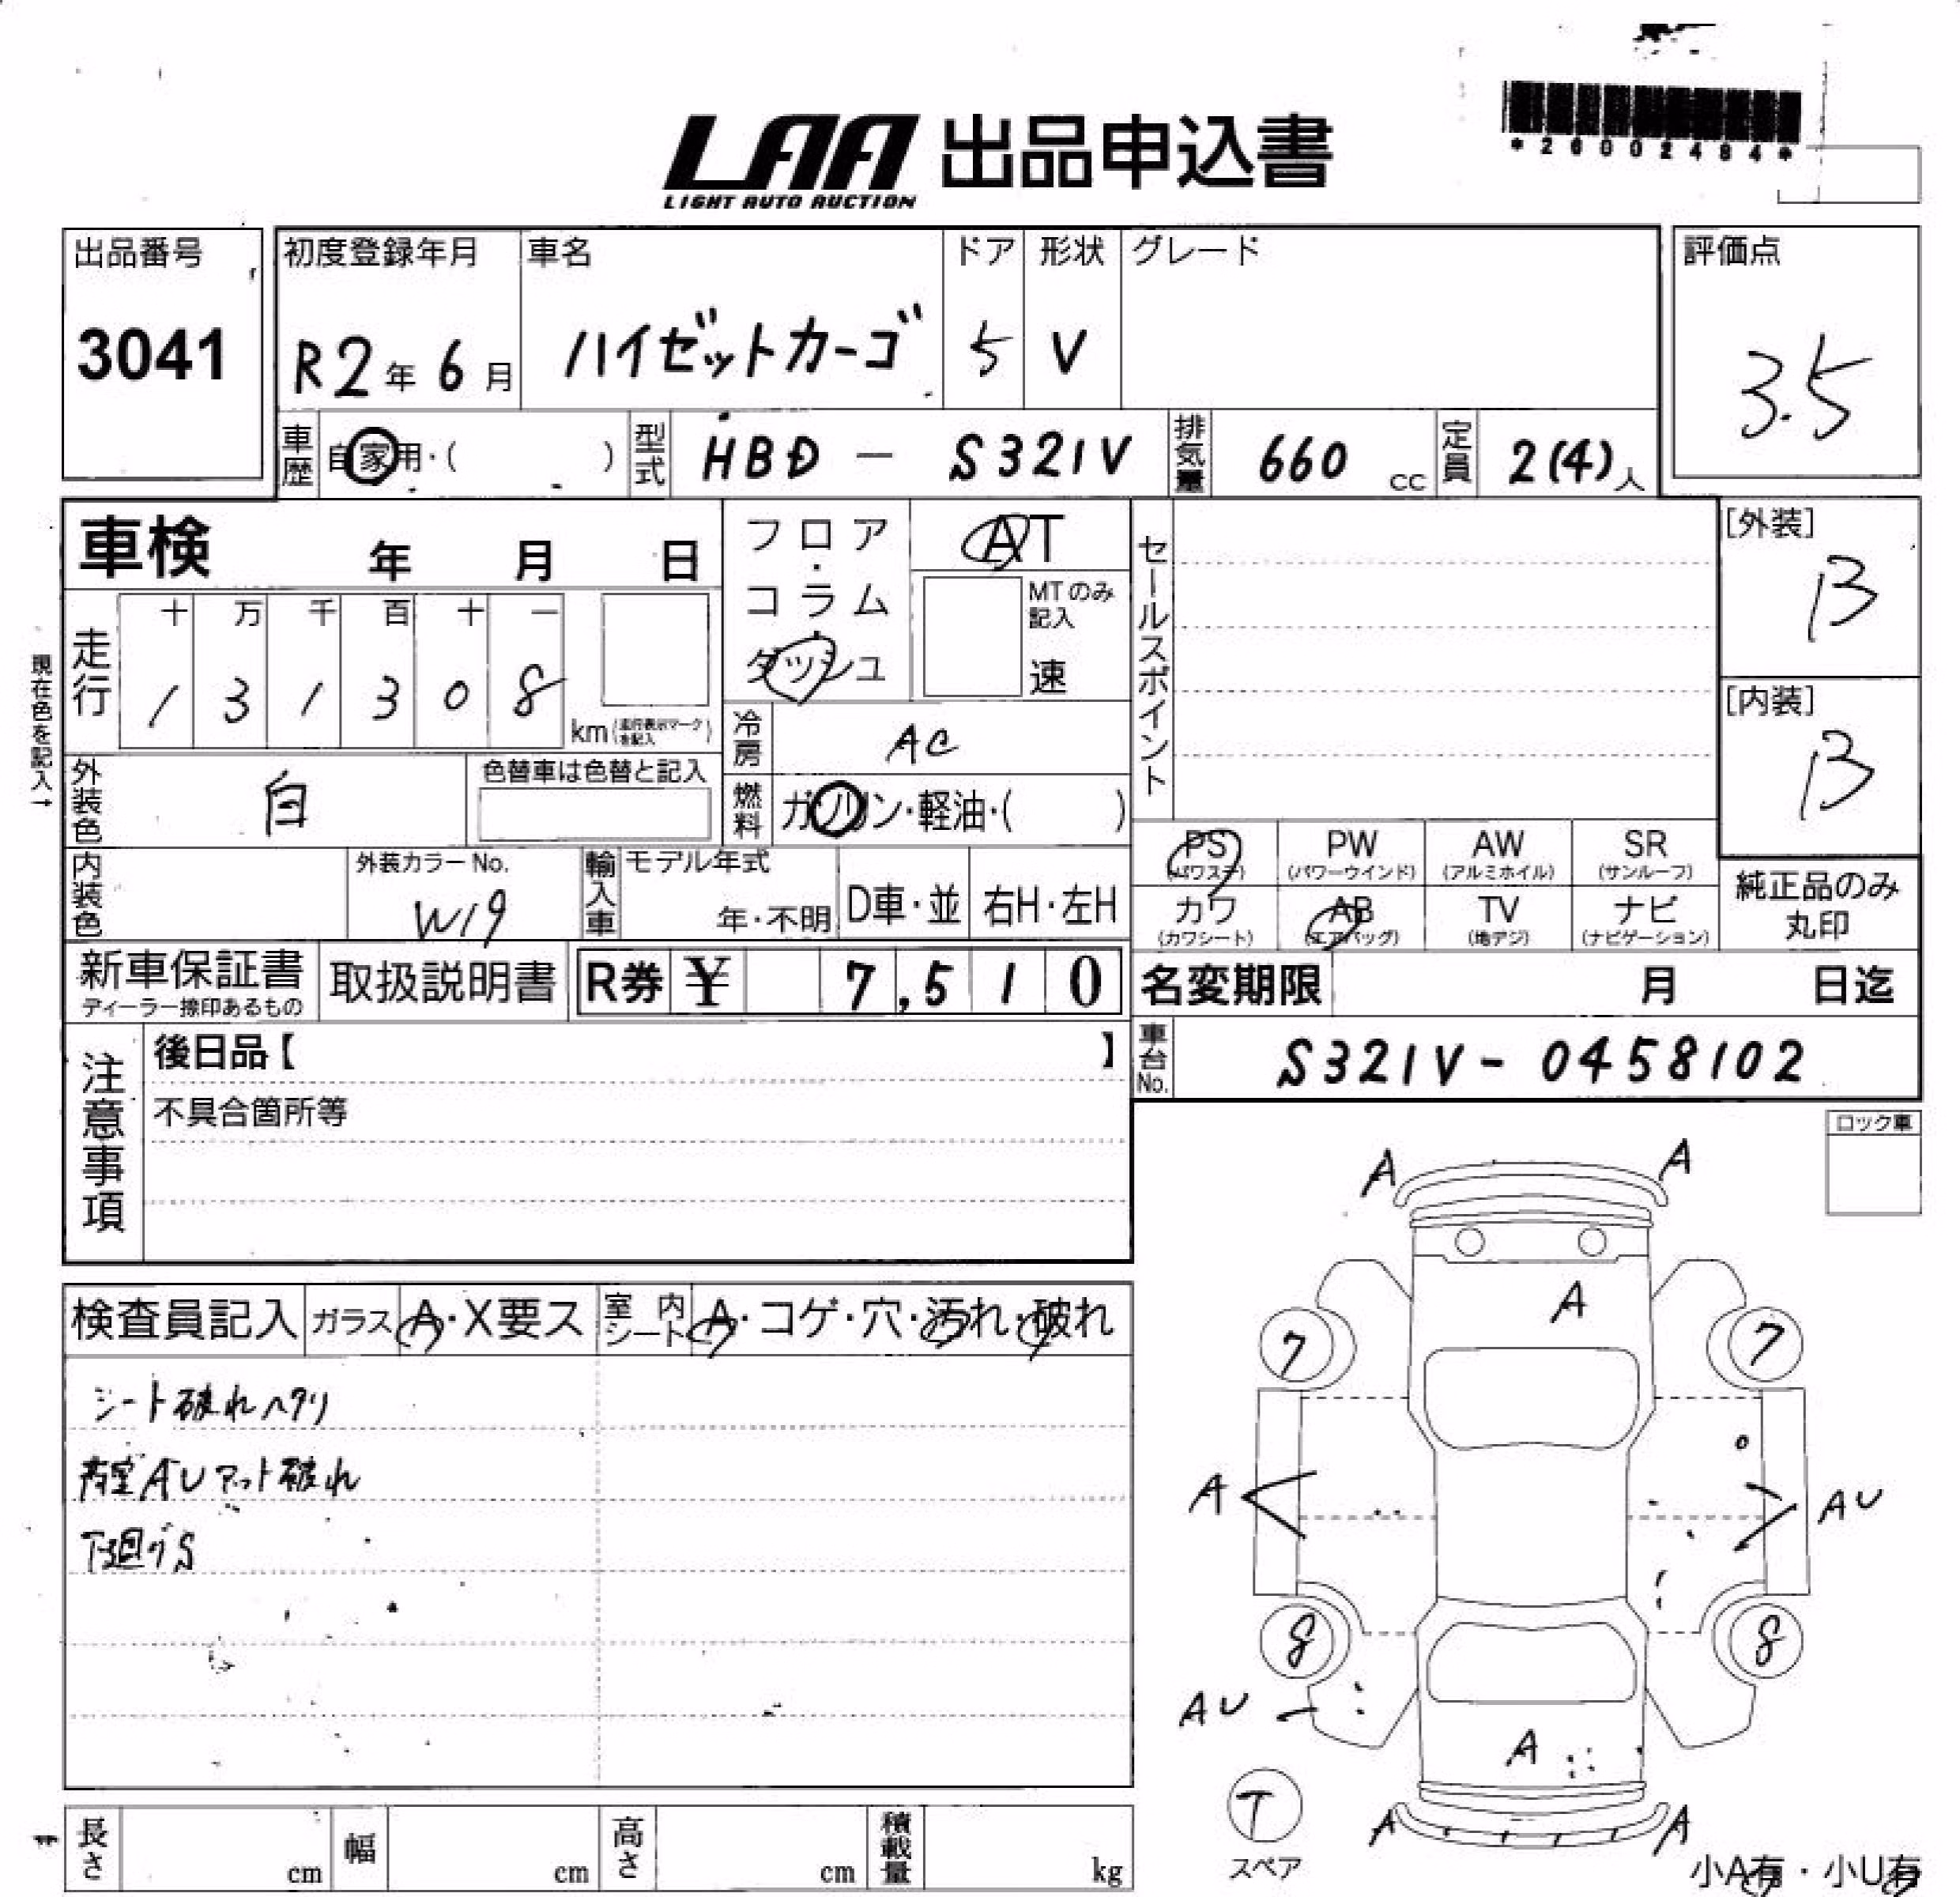 *26002484*
LAA 出品申込書
LIGHT AUTO AUCTION
出品番号 初度登録年月 車名 ドア 形状 グレード 評価点
3041 R2年 6月 ハイゼットカーゴ 5 V 3.5
車歴 自家用・( ) 型式 HBD - S321V 排気量 660 cc 定員 2(4)人
車検 年 月 日
フロア・コラム・ダッシュ
AT
MTのみ記入
速
セールスポイント
[外装]
B
[内装]
B
現在色を記入→
走行 十 万 千 百 十 一
1 3 1 3 0 8 km(走行表示マークを記入)
冷房 AC
外装色 白 色替車は色替と記入
燃料 ガソリン・軽油・( )
内装色 外装カラーNo. W19
輸入車 モデル年式 年・不明 D車・並 右H・左H
PS(パワステ) PW(パワーウインド) AW(アルミホイル) SR(サンルーフ)
カワ(カワシート) AB(エアバッグ) TV(地デジ) ナビ(ナビゲーション)
純正品のみ丸印
新車保証書 ディーラー捺印あるもの 取扱説明書 R券 ¥ 7,510
名変期限 月 日迄
車台No. S321V-0458102
注意事項
後日品【 】
不具合箇所等
ロック車
検査員記入 ガラス A・X要ス 室内シート A・コゲ・穴・汚れ・破れ
シート破れヘタリ
荷室AUマット破れ
下廻りS
A A
A
7 7
A AU
8 8
AU
A
T
スペア
A A
小A有・小U有
長さ cm 幅 cm 高さ cm 積載量 kg